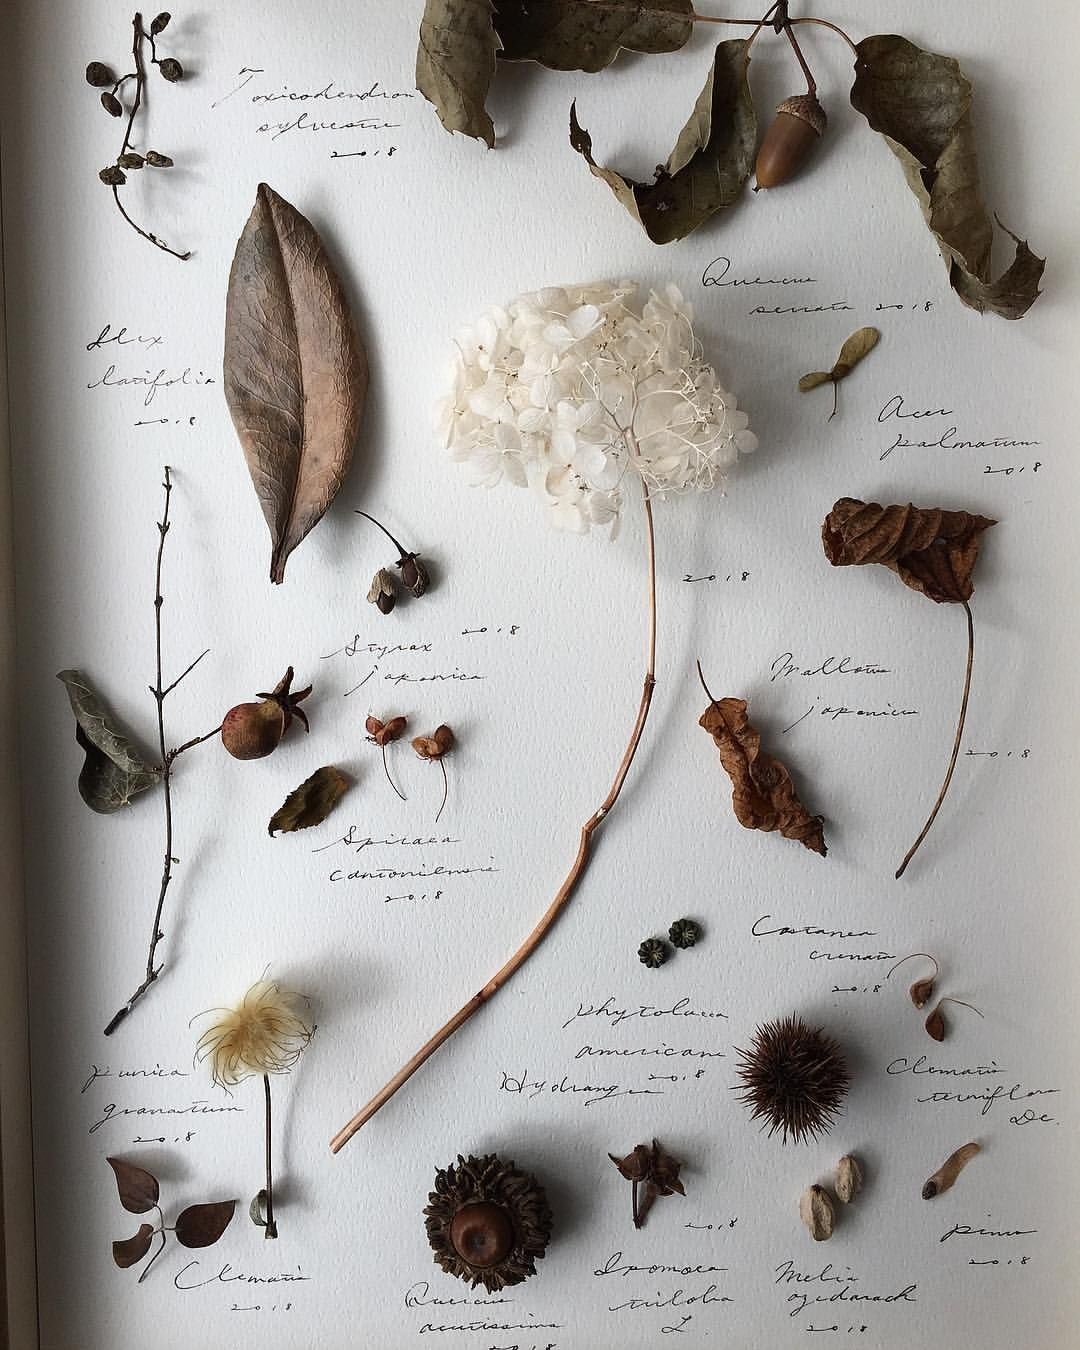 Toxicodendron
sylvestre
2018
Quercus
serrata 2018
Ilex
latifolia
2018
Acer
palmatum
2018
2018
Styrax 2018
japonica
Mallotus
japonicus
2018
Spiraea
cantoniensis
2018
Castanea
crenata
2018
phytolacca
americana
2018
Hydrangea
Clematis
terniflora
DC.
punica
granatum
2018
Clematis
2018
Quercus
acutissima
2018
2018
Ipomoea
triloba
L.
Melia
azedarach
2018
pinus
2018